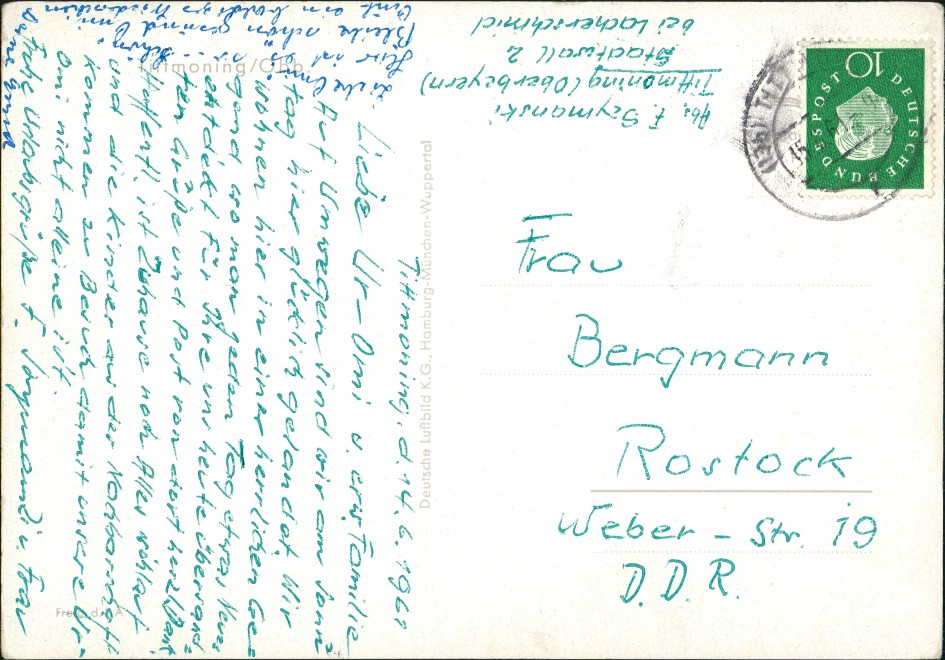 Tittmoning, d. 14. 6. 1961
Liebe Ur-Omi u. erw. Familie
Auf Umwegen sind wir am Sonn=
tag hier glücklich gelandet. Wir
wohnen hier in einer herrlichen Ge=
gend wo man jeden Tag etwas Neues
entdeckt. Für Ihre uns heute übersand=
ten Grüße und Post von dort herzl. Dank
Hoffentl. ist Zuhause noch Alles wohlauf
und die Kinder aus der Nachbarschaft
kommen zu Besuch damit unsere Ur=
omi nicht alleine ist.
Frohe Urlaubsgrüße F. Szymanski u. Frau
Liebe Omi!
Hier ist es
Bleibe schön gesund Omi
Auf ein baldiges Wiedersehen
Deine
Tittmoning/Obb.
Deutsche Luftbild K.G., Hamburg-München-Wuppertal
Abs. F. Szymanski
Tittmoning (Oberbayern)
Stadtwall 2
bei Lacherschmid
10
DEUTSCHE BUNDESPOST
Frau
Bergmann
Rostock
Weber-Str. 19
D.D.R.